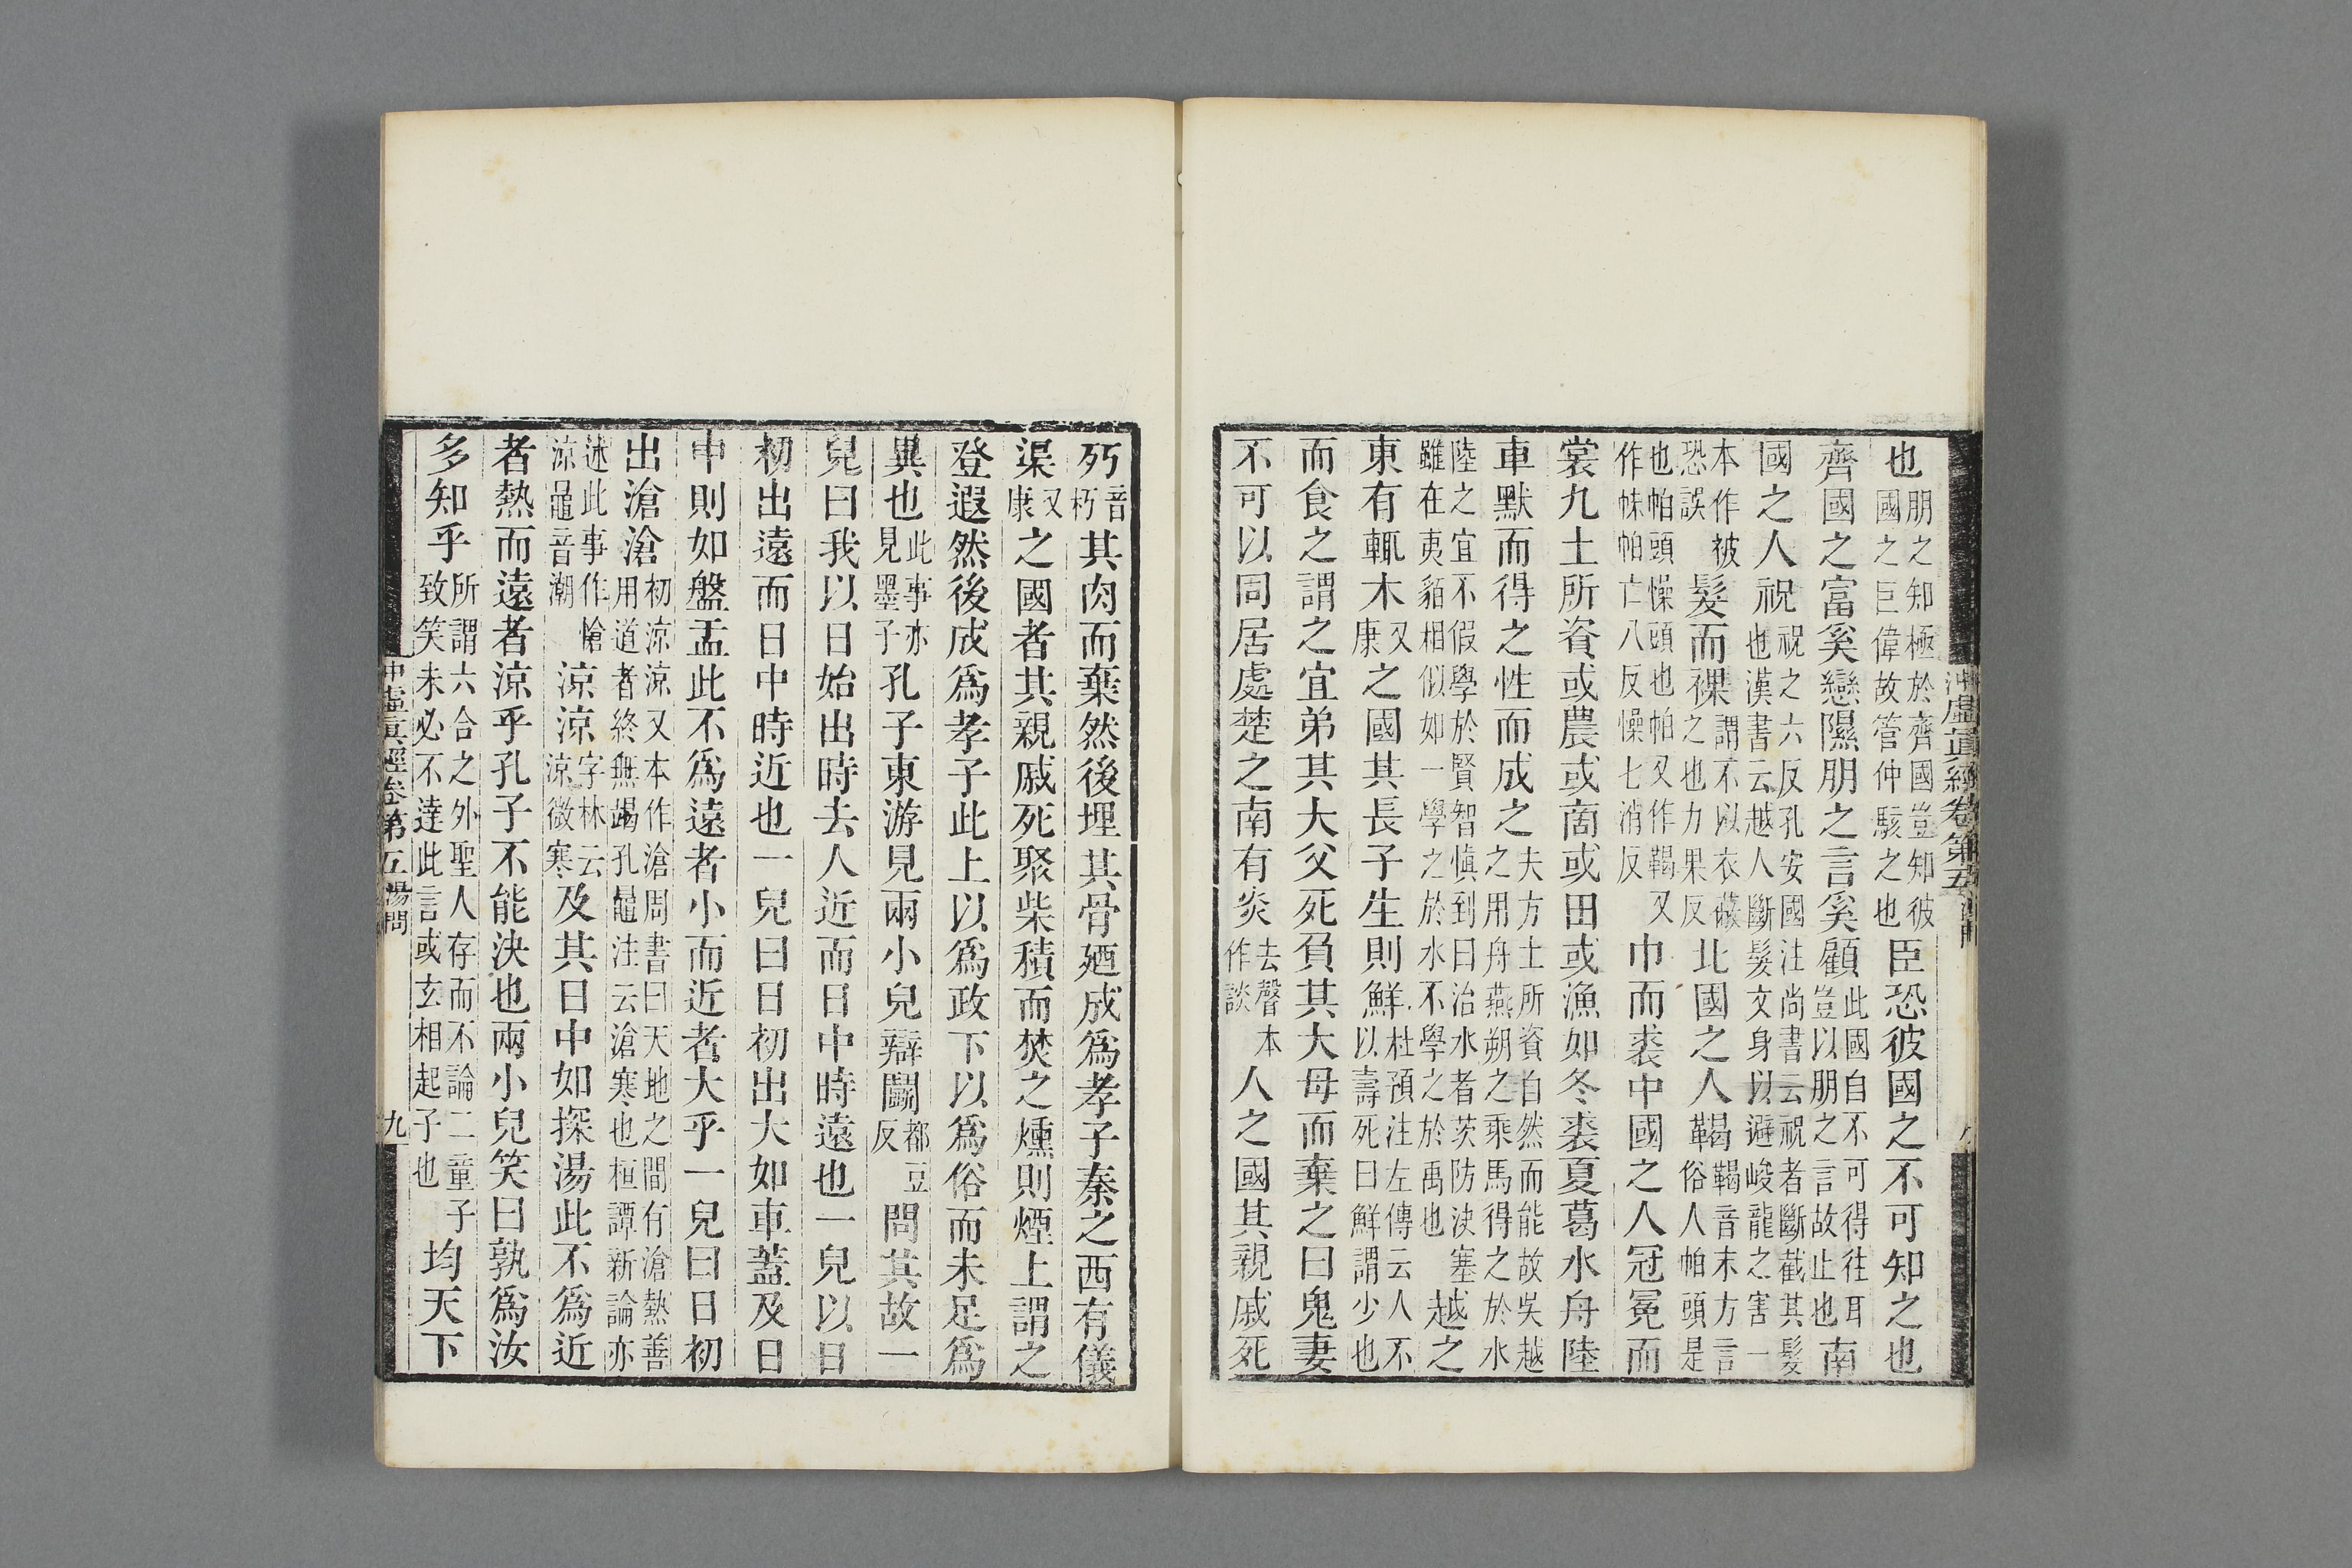 沖虛眞經卷第五
也朋之知極於齊國豈知彼國之巨偉故管仲駭之也臣恐彼國之不可知之也
齊國之富奚戀隰朋之言奚顧此國自不可得往耳豈以朋之言故止也南
國之人祝祝之六反孔安國注尚書云祝者斷截其髮也漢書云越人斷髮文身以避峻龍之害一
本作被恐誤髮而裸謂不以衣蔽之也力果反北國之人鞨鞨音末方言俗人帕頭是
也帕頭幧頭也帕又作鞨又作帓帕亡八反幧七消反巾而裘中國之人冠冕而
裳九土所資或農或商或田或漁如冬裘夏葛水舟陸
車默而得之性而成之夫方土所資自然而能故吳越之用舟燕朔之乘馬得之於水
陸之宜不假學於賢智愼到曰治水者茨防決塞雖在夷貊相似如一學之於水不學之於禹也越之
東有輒木又康之國其長子生則鮮杜預注左傳云人不以壽死曰鮮謂少也
而食之謂之宜弟其大父死負其大母而棄之曰鬼妻
不可以同居處楚之南有炎去聲本作談人之國其親戚死
㱙音朽其肉而棄然後埋其骨廼成爲孝子秦之西有儀
渠又康之國者其親戚死聚柴積而焚之燻則煙上謂之
登遐然後成爲孝子此上以爲政下以爲俗而未足爲
異也此事亦見墨子孔子東游見兩小兒辯鬭都豆反問其故一
兒曰我以日始出時去人近而日中時遠也一兒以日
初出遠而日中時近也一兒曰日初出大如車蓋及日
中則如盤盂此不爲遠者小而近者大乎一兒曰日初
出滄滄初涼涼又本作滄周書曰天地之間有滄熱善用道者終無竭孔鼂注云滄寒也桓譚新論亦
述此事作愴涼鼂音潮涼涼字林云涼微寒及其日中如探湯此不爲近
者熱而遠者涼乎孔子不能決也兩小兒笑曰孰爲汝
多知乎所謂六合之外聖人存而不論二童子致笑未必不達此言或玄相起予也均天下
沖虛眞經卷第五湯問 九